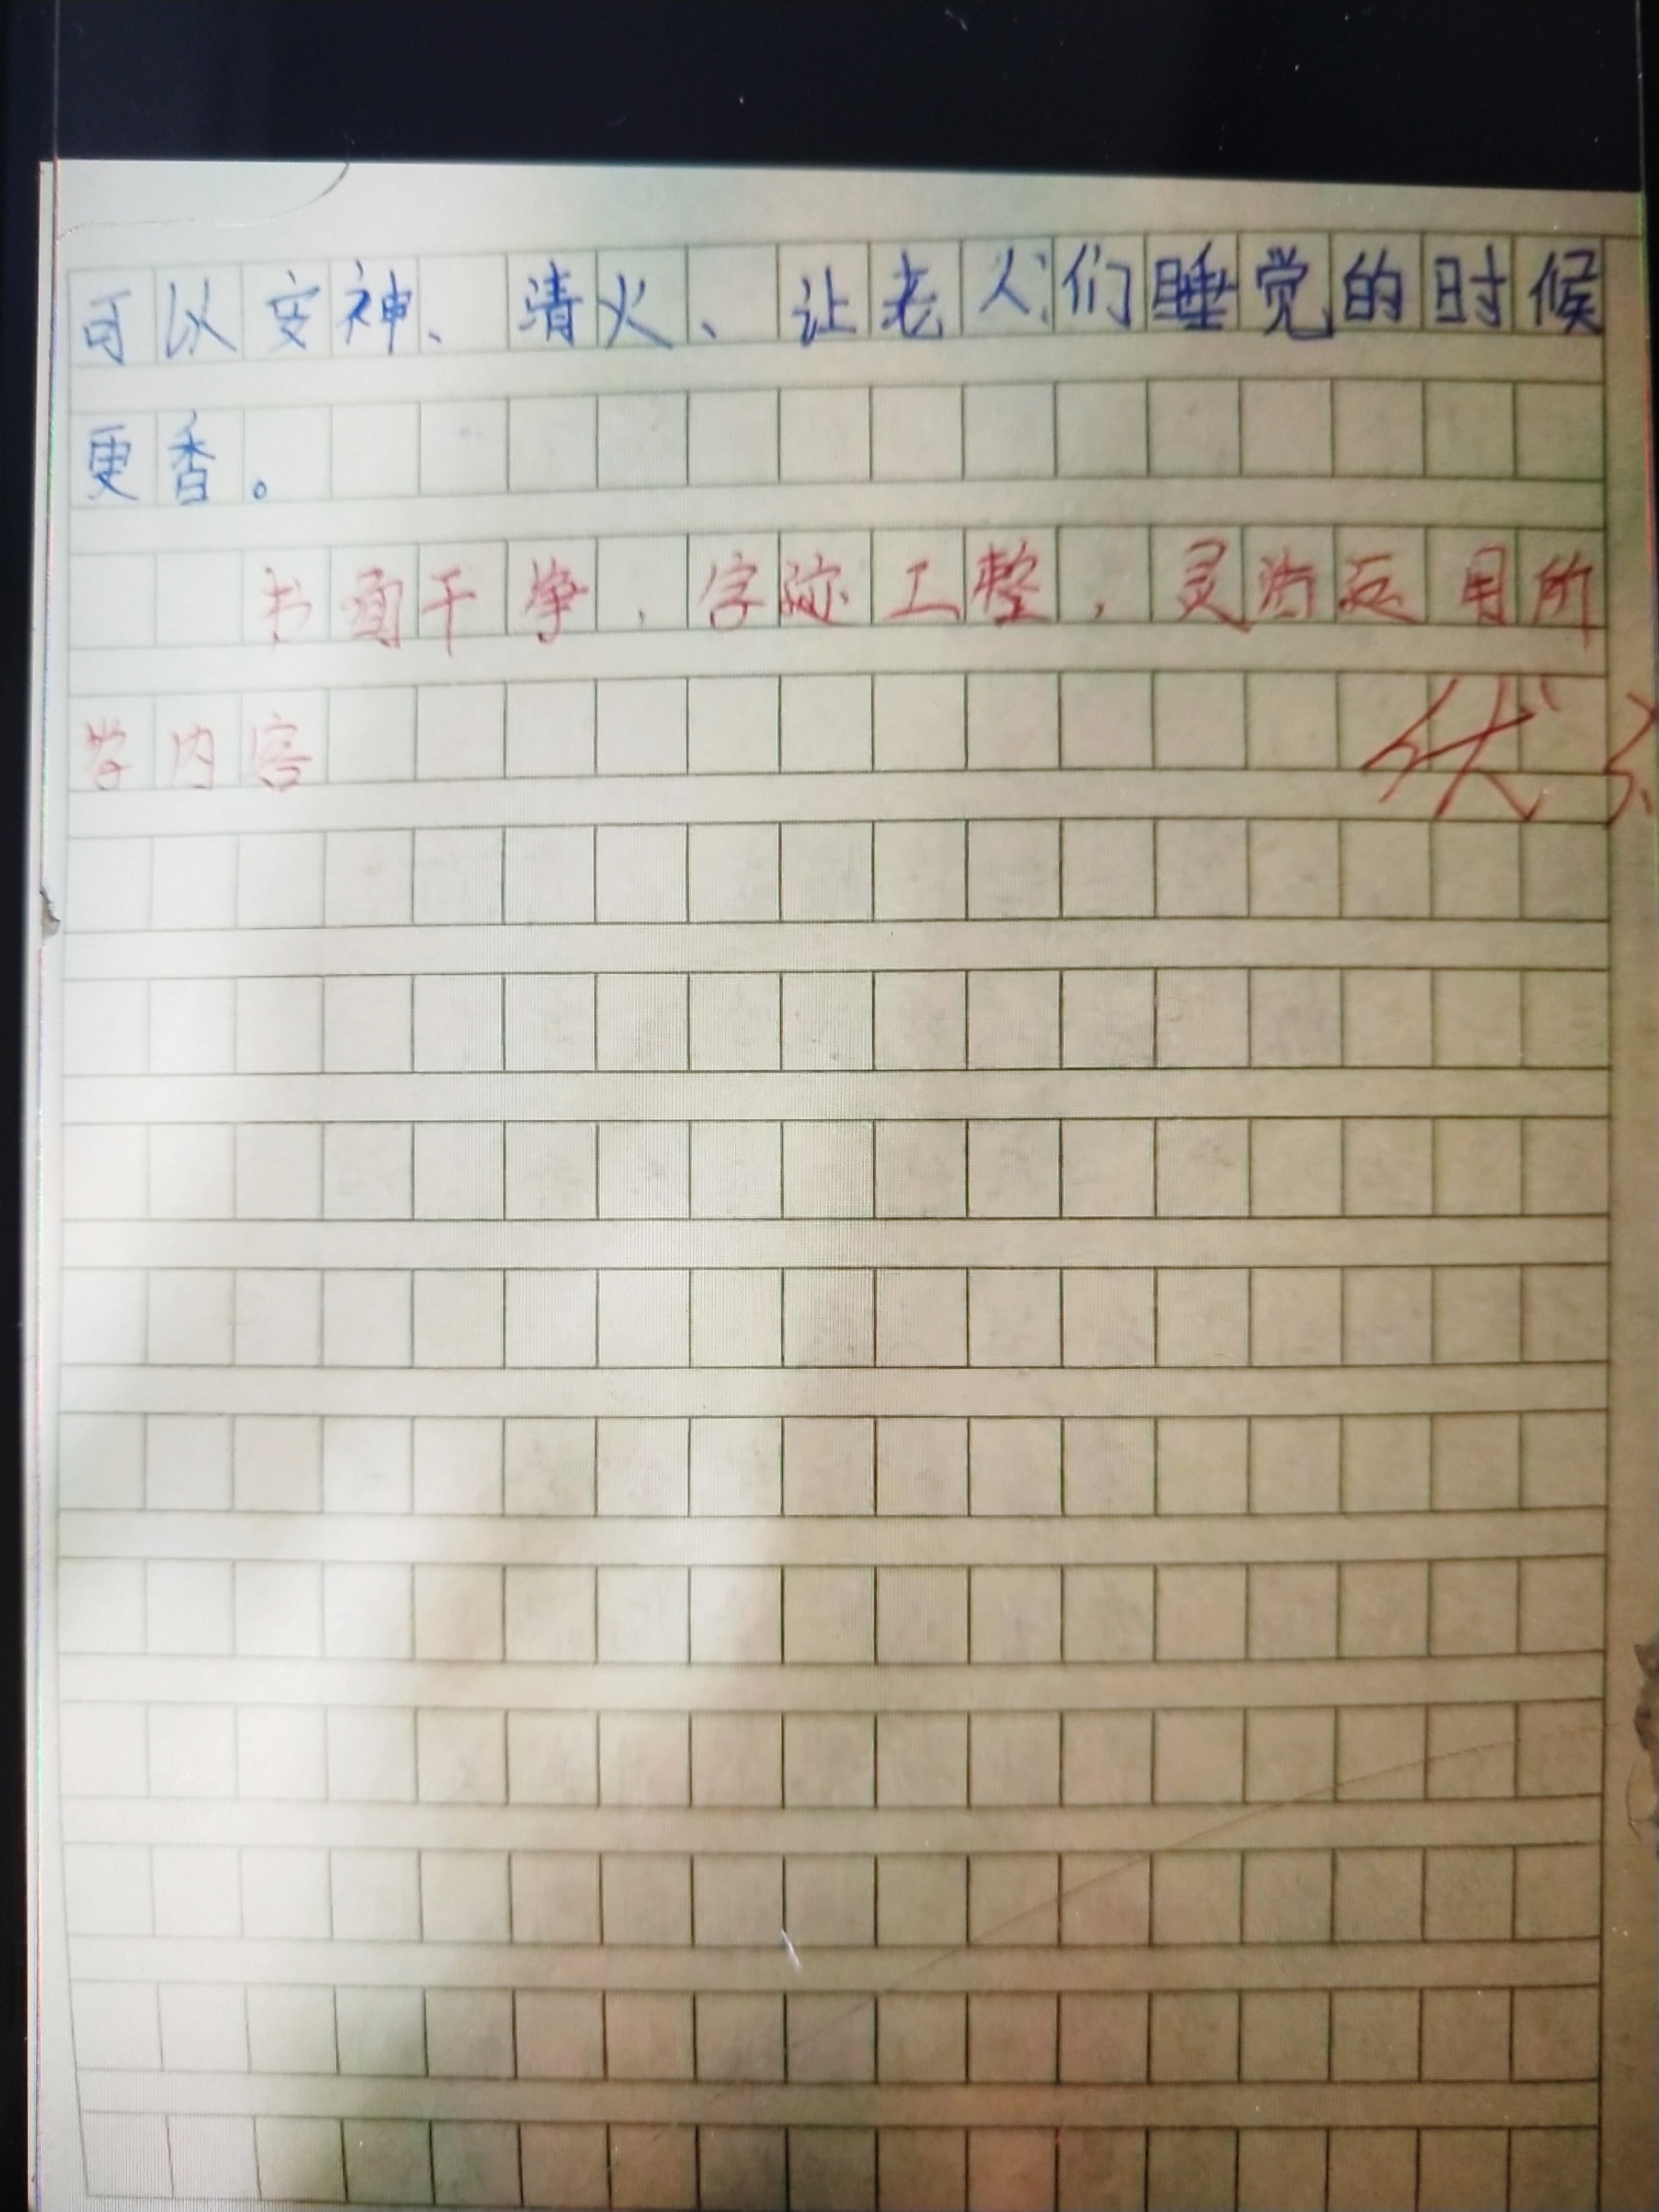 可以安神、清火、让老人们睡觉的时候
更香。
书面干净，字迹工整，灵活运用所
学内容
优